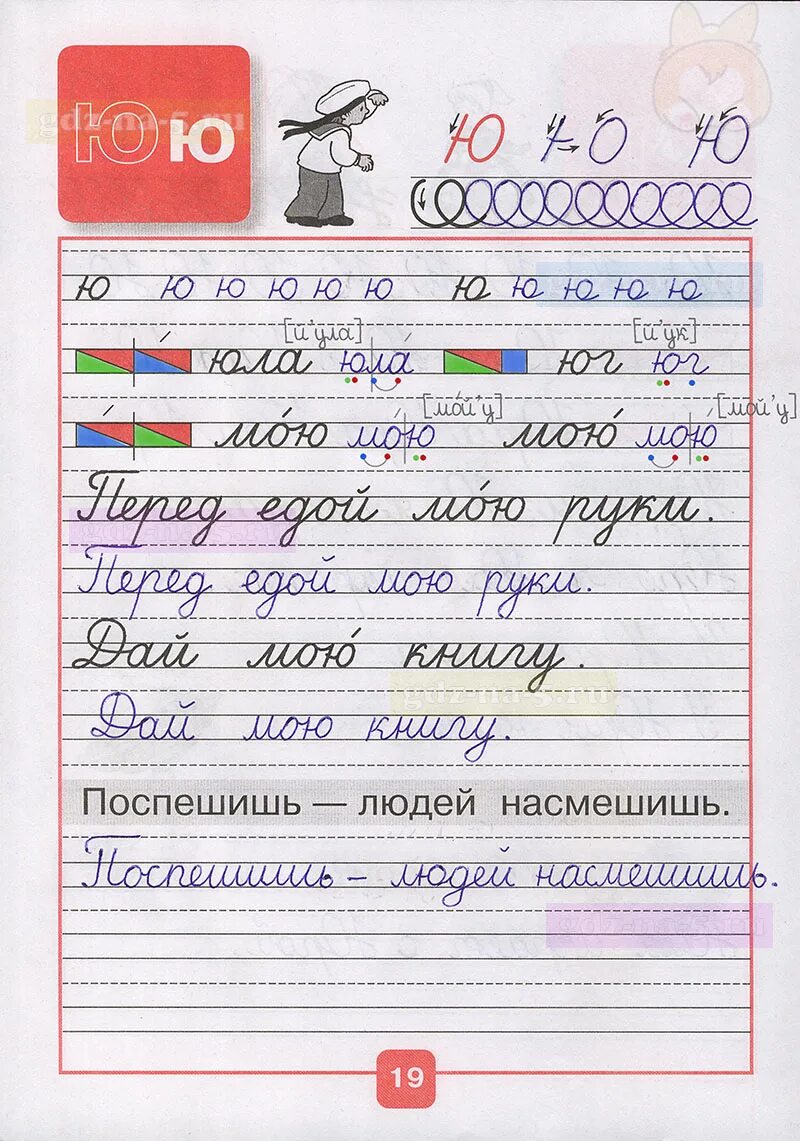 Ю ю
Ю Ю Ю
ю ю ю ю ю ю ю ю ю ю ю
[й'ула] [й'ук]
юла юла́ юг юг
[мо́й'у] [мой'у́]
мо́ю мо́ю мою́ мою́
Перед едой мо́ю руки.
Перед едой мою руки.
Дай мою́ книгу.
Дай мою книгу.
gdz-na-5.ru
Поспешишь — людей насмешишь.
Поспешишь – людей насмешишь.
gdz-na-5.ru
19